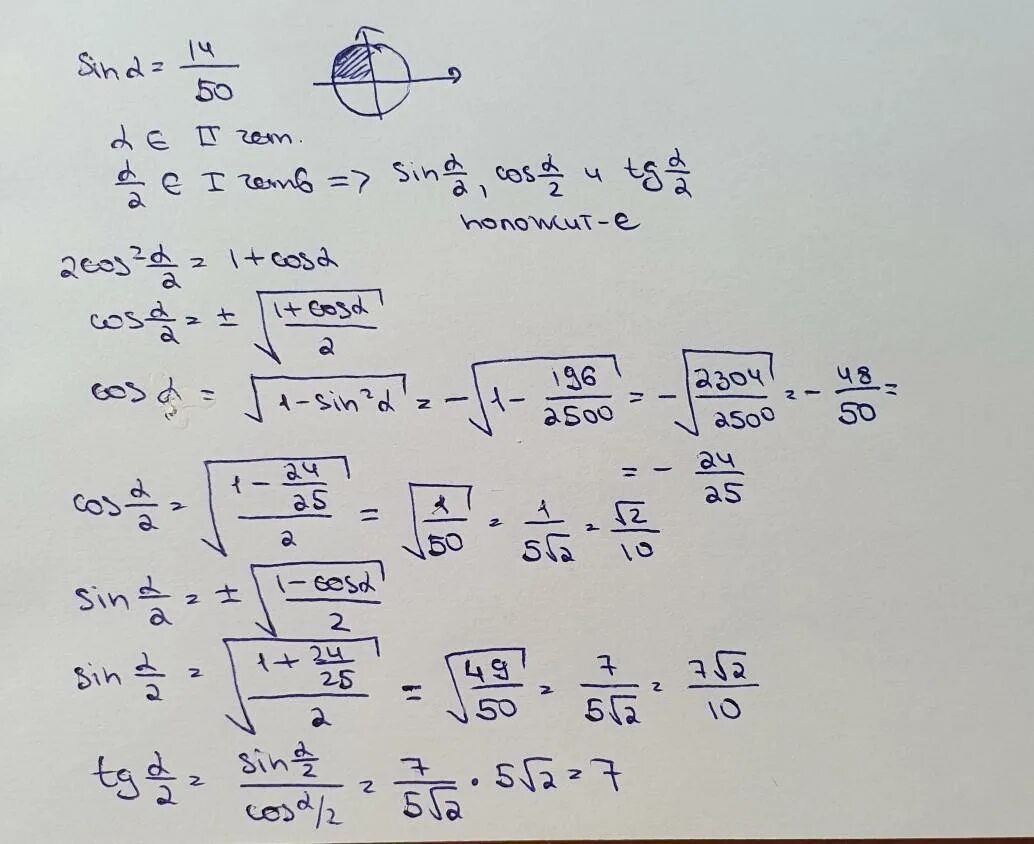 sin α = 14/50
α ∈ II чет.
α/2 ∈ I четв => sin α/2, cos α/2 и tg α/2
положит-е
2cos² α/2 = 1 + cos α
cos α/2 = ± √((1 + cos α)/2)
cos α = √(1 - sin² α) = -√(1 - 196/2500) = -√(2304/2500) = - 48/50 =
= - 24/25
cos α/2 = √((1 - 24/25)/2) = √(1/50) = 1/(5√2) = √2/10
sin α/2 = ± √((1 - cos α)/2)
sin α/2 = √((1 + 24/25)/2) = √(49/50) = 7/(5√2) = 7√2/10
tg α/2 = (sin α/2)/(cos α/2) = 7/(5√2) · 5√2 = 7